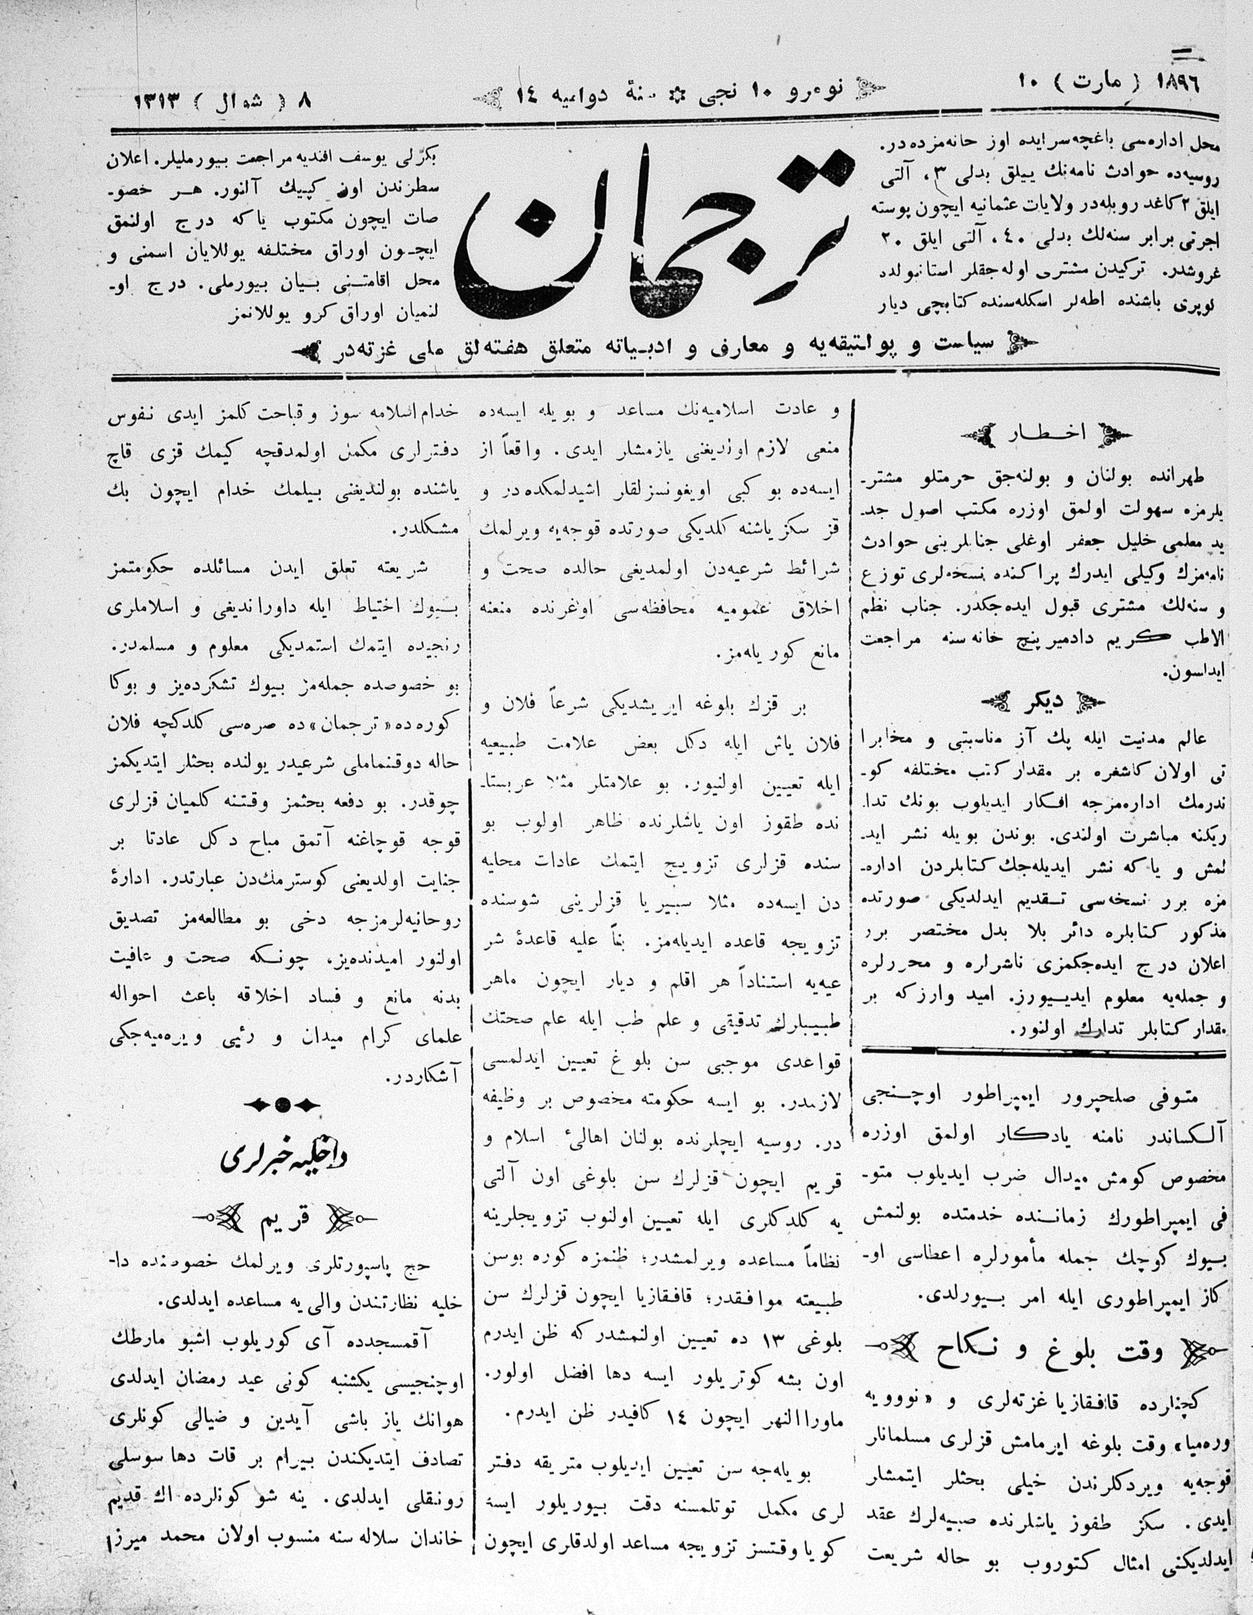 ١٨٩٦ ( مارت ) ١٠
نومرو ١٠ نجی ✼ سنۀ دوامیه ١٤
٨ ( شوال ) ١٣١٣
محل اداره‌سی باغچه‌سرایده اوز خانه‌مزده‌در.
روسیه‌ده حوادث نامه‌نك ییللق بدلی ٣، آلتی
ایلق ٢ کاغد روبله‌در ولایات عثمانیه ایچون پوسته
اجرتی برابر سنه‌لك بدلی ٤٠، آلتی ایلق ٢٠
غروشدر. ترکیدن مشتری اوله‌جقلر استانبولده
کوپری باشنده اطه‌لر اسکله‌سنده کتابچی دیار
ترجمان
بکرلی یوسف افندیه مراجعت بیورملیلر. اعلان
سطرندن اون کپیك آلنور. هر خصو-
صات ایچون مکتوب یاکه درج اولنمق
ایچون اوراق مختلفه یوللایان اسمنی و
محل اقامتنی بیان بیورملی. درج او-
لنمیان اوراق کرو یوللانمز
سیاست و پولتیقه‌یه و معارف و ادبیاته متعلق هفته‌لق ملی غزته‌در
اخطار
طهرانده بولنان و بولنه‌جق حرمتلو مشتر-
یلرمزه سهولت اولمق اوزره مکتب اصول جد-
ید معلمی خلیل جعفر اوغلی جنابلرینی حوادث
نامه‌مزك وکیلی ایدرك پراکنده نسخه‌لری توزع
و سنه‌لك مشتری قبول ایده‌جکدر. جناب نظم
الاطب کریم دادمیر پنج خانه سنه مراجعت
ایداسون.
دیکر
عالم مدنیت ایله پك آز مناسبتی و مخابرا
تی اولان کاشغره بر مقدار کتب مختلفه کو-
ندرمك اداره‌مزجه افکار ایدیلوب بونك تدا-
رکنه مباشرت اولندی. بوندن بویله نشر اید-
لمش و یا که نشر ایدیله‌جك کتابلردن اداره-
مزه برر نسخه‌سی تقدیم ایدلدیکی صورتده
مذکور کتابلره دائر بلا بدل مختصر برر
اعلان درج ایده‌جکمزی ناشرلره و محررلره
و جمله‌یه معلوم ایدییورز. امید وارزکه بر
مقدار کتابلر تدارك اولنور.
متوفی صلحپرور ایمپراطور اوچنجی
آلکساندر نامنه یادکار اولمق اوزره
مخصوص کومش میدال ضرب ایدیلوب متو-
فی ایمپراطورك زماننده خدمتده بولنمش
بیوك کوچك جمله مأمورلره اعطاسی او-
کاز ایمپراطوری ایله امر بیورلدی.
وقت بلوغ و نکاح
کچنلرده قافقازیا غزته‌لری و «نوویه
وره‌میا» وقت بلوغه ایرمامش قزلری مسلمانلر
قوجه‌یه ویردکلرندن خیلی بحثلر ایتمشلر
ایدی. سکز طقوز یاشلرنده صبیه‌لرك عقد
ایدلدیکنی امثال کتوروب بو حاله شریعت
و عادت اسلامیه‌نك مساعد و بویله ایسه‌ده
منعی لازم اولدیغنی یازمشلر ایدی. واقعاً از
ایسه‌ده بو کبی اویغونسزلقلر اشیدلمکده‌در و
قز سکز یاشنه کلدیکی صورتده قوجه‌یه ویرلمك
شرائط شرعیه‌دن اولمدیغی حالده صحت و
اخلاق عمومیه محافظه‌سی اوغرنده منعنه
مانع کوریله‌مز.
بر قزك بلوغه ایریشدیکی شرعاً فلان و
فلان یاش ایله دکل بعض علامت طبیعیه
ایله تعیین اولنیور. بو علامتلر مثلا عربستا-
نده طقوز اون یاشلرنده ظاهر اولوب بو
سنده قزلری تزویج ایتمك عادات محلیه
دن ایسه‌ده مثلا سبیریا قزلرینی شوسنده
تزویجه قاعده ایدیله‌مز. بنأ علیه قاعدۀ شر
عیه‌یه استناداً هر اقلم و دیار ایچون ماهر
طبیبلرك تدقیقی و علم طب ایله علم صحتك
قواعدی موجبی سن بلوغ تعیین ایدلمسی
لازمدر. بو ایسه حکومته مخصوص بر وظیفه
در. روسیه ایچلرنده بولنان اهالیٔ اسلام و
قریم ایچون قزلرك سن بلوغی اون آلتی
یه کلدکلری ایله تعیین اولنوب تزویجلرینه
نظاماً مساعده ویرلمشدر؛ ظنمزه کوره بوسن
طبیعته موافقدر؛ قافقازیا ایچون قزلرك سن
بلوغی ١٣ ده تعیین اولنمشدرکه ظن ایدرم
اون بشه کوتریلور ایسه دها افضل اولور.
ماوراالنهر ایچون ١٤ کافیدر ظن ایدرم.
بویله‌جه سن تعیین ایدیلوب متریقه دفتر
لری مکمل توتلمسنه دقت بیوریلور ایسه
کویا وقتسز تزویجه مساعد اولدقلری ایچون
خدام اسلامه سوز و قباحت کلمز ایدی نفوس
دفترلری مکمل اولمدقچه کیمك قزی قاچ
یاشنده بولندیغنی بیلمك خدام ایچون بك
مشکلدر.
شریعته تعلق ایدن مسائلده حکومتمز
بیوك اختیاط ایله داوراندیغی و اسلاملری
رنجیده ایتمك استمدیکی معلوم و مسلمدر.
بو خصوصده جمله‌مز بیوك تشکرده‌یز و بوکا
کوره‌ده «ترجمان»ده صره‌سی کلدکچه فلان
حاله دوقنماملی شرعیدر یولنده بحثلر ایتدیکمز
چوقدر. بو دفعه بحثمز وقتنه کلمیان قزلری
قوجه قوچاغنه آتمق مباح دکل عادتا بر
جنایت اولدیغنی کوسترمك‌دن عبارتدر. ادارۀ
روحانیه‌لرمزجه دخی بو مطالعه‌مز تصدیق
اولنور امیدنده‌یز. چونکه صحت و عافیت
بدنه مانع و فساد اخلاقه باعث احواله
علمای کرام میدان و رئیی ویره‌میه‌جکی
آشکاردر.
داخلیه خبرلری
قریم
حج پاسپورتلری ویرلمك خصوصنده دا-
خلیه نظارتندن والی‌یه مساعده ایدلدی.
آقمسجدده آی کوریلوب اشبو مارطك
اوچنجیسی یکشنبه کونی عید رمضان ایدلدی
هوانك یاز باشی آیدین و ضیالی کونلری
تصادف ایتدیکندن بیرام بر قات دها سوسلی
رونقلی ایدلدی. ینه شو کونلرده اك قدیم
خاندان سلاله سنه منسوب اولان محمد میرزا